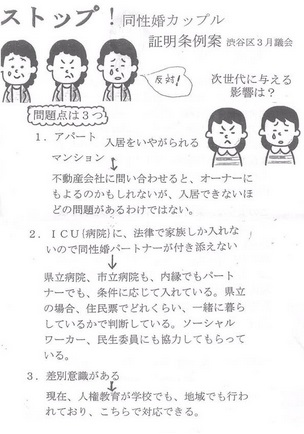 ストップ！同性婚カップル
証明条例案 渋谷区3月議会
反対！
次世代に与える
影響は？
問題点は3つ
1．アパート
マンション
入居をいやがられる
不動産会社に問い合わせると、オーナーに
もよるのかもしれないが、入居できないほ
どの問題があるわけではない。
2．ICU{病院}に、法律で家族しか入れな
いので同性婚パートナーが付き添えない
県立病院、市立病院も、内縁でもパート
ナーでも、条件に応じて入れている。県立
の場合、住民票でどれくらい、一緒に暮ら
しているかで判断している。ソーシャル
ワーカー、民生委員にも協力してもらって
いる。
3．差別意識がある
現在、人権教育が学校でも、地域でも行わ
れており、こちらで対応できる。